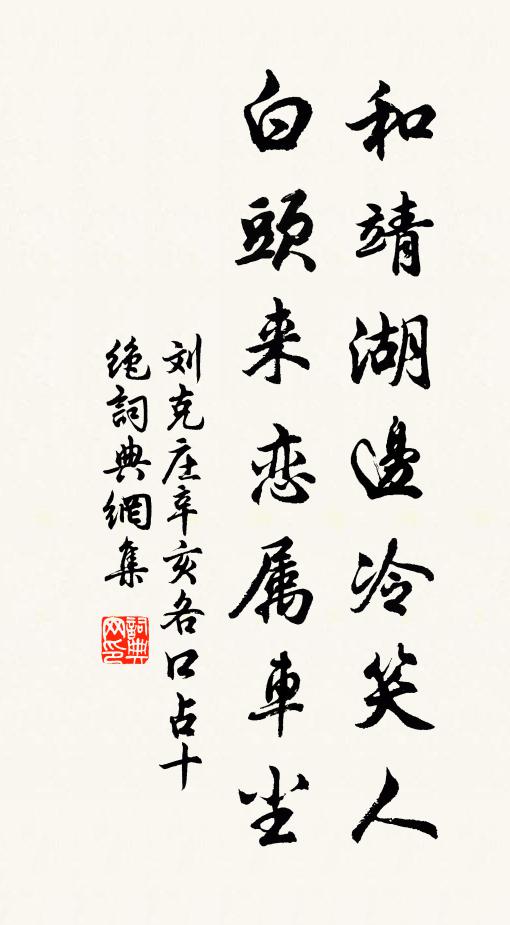 和靖湖邊冷笑人
白頭来恋属車尘
刘克庄辛亥各口占十
绝詞典網集
詞典网印